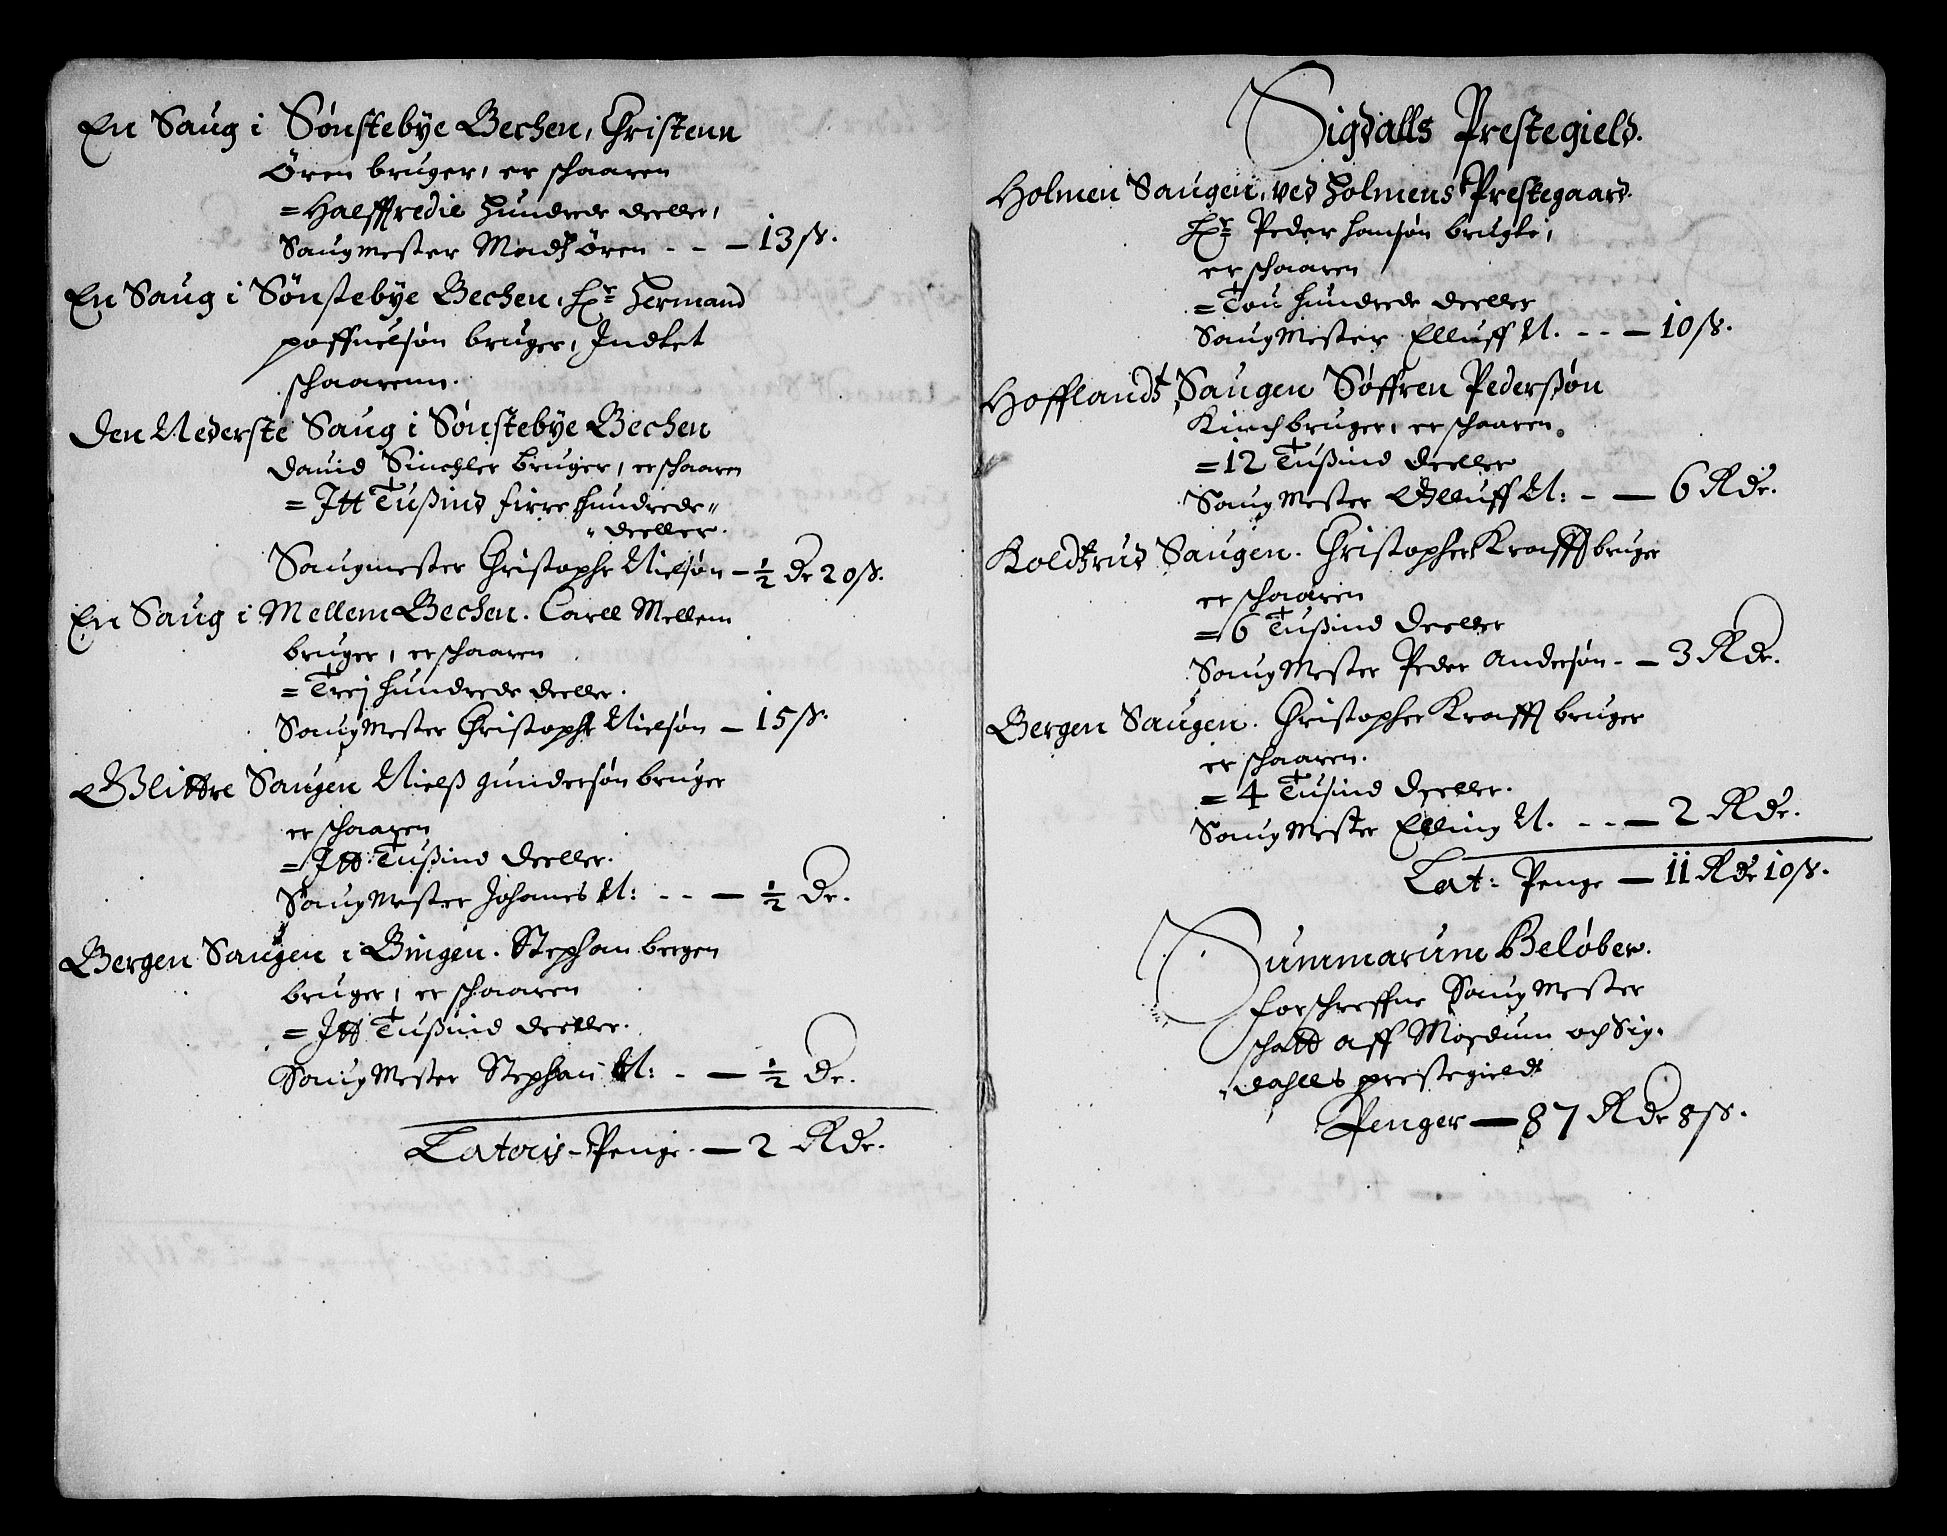 En Saug i Sønstebye Bechen, Christenn
Ören bruger, er schaaren
= Halffredie Hundrede deeller,
Saugmester Madtz ören - - - 13 ß.
En Saug i Sönstebye Bechen, Hr. Hermand
poffuelsøn bruger, Indtet
schaarenn.
Den Nederste Saug i Sönstebye Bechen
Dauid Sinchler bruger, er schaaren
= Itt Tußind firre hundrede
deeller.
Saugmester Christopher Nielsøn - ½ Dr 20 ß.
En Saug i Mellem Bechen. Carll Mellem
bruger, er schaaren
= Trej hundrede deeller.
Saug Mester Christopher Nielsøn - 15 ß.
Glittre Saugen Nielß gundersøn bruger
er schaaren
= Itt Tußind deeller.
Saug Mester Johanes N: - - - ½ Dr.
Bergen Saugen i Bingen. Stephan bergen
bruger, er schaaren
= Itt Tußind deeller.
Saug Mester Stephan N: - - ½ Dr.
Lateris - Penge. - 2 Rdr.
Sigdalls Prestegield.
Holmen Saugen, ved Holmens Prestegaard.
Hr. Peder hansøn brugte,
er schaaren
= Tou hundrede deeller
Saug Mester Elluff N. - - - 10 ß.
Hofflandt Saugen Søffren Pederßøn
Kinch bruger, er schaaren.
= 12 Tußind deeller
Saug Mester Olluff N: - - 6 Rdr.
Koldtrud Saugen. Christopher Krafft bruger
er schaaren
= 6 Tußind deeller
Saug Mester Peder Andersøn - - 3 Rdr.
Bergen Saugen. Christopher Krafft bruger
er schaaren.
= 4 Tusind deeller.
Saug Mester Elling N. - - - 2 Rdr.
Lat: Penge - 11 Rdr 10 ß.
Summarum Beløber.
forschreffne Saug Mester
schatt aff Modum och Sig-
dahlls prestegield
Penger - 87 Rdr 8 ß.